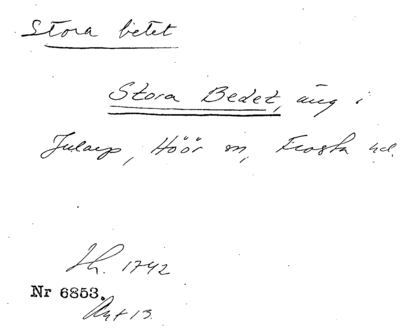 Stora betet
Stora Bedet, äng i
Jularp, Höör sn, Frosta hd.
Lh. 1742
Nr 6853.
Akt 13.